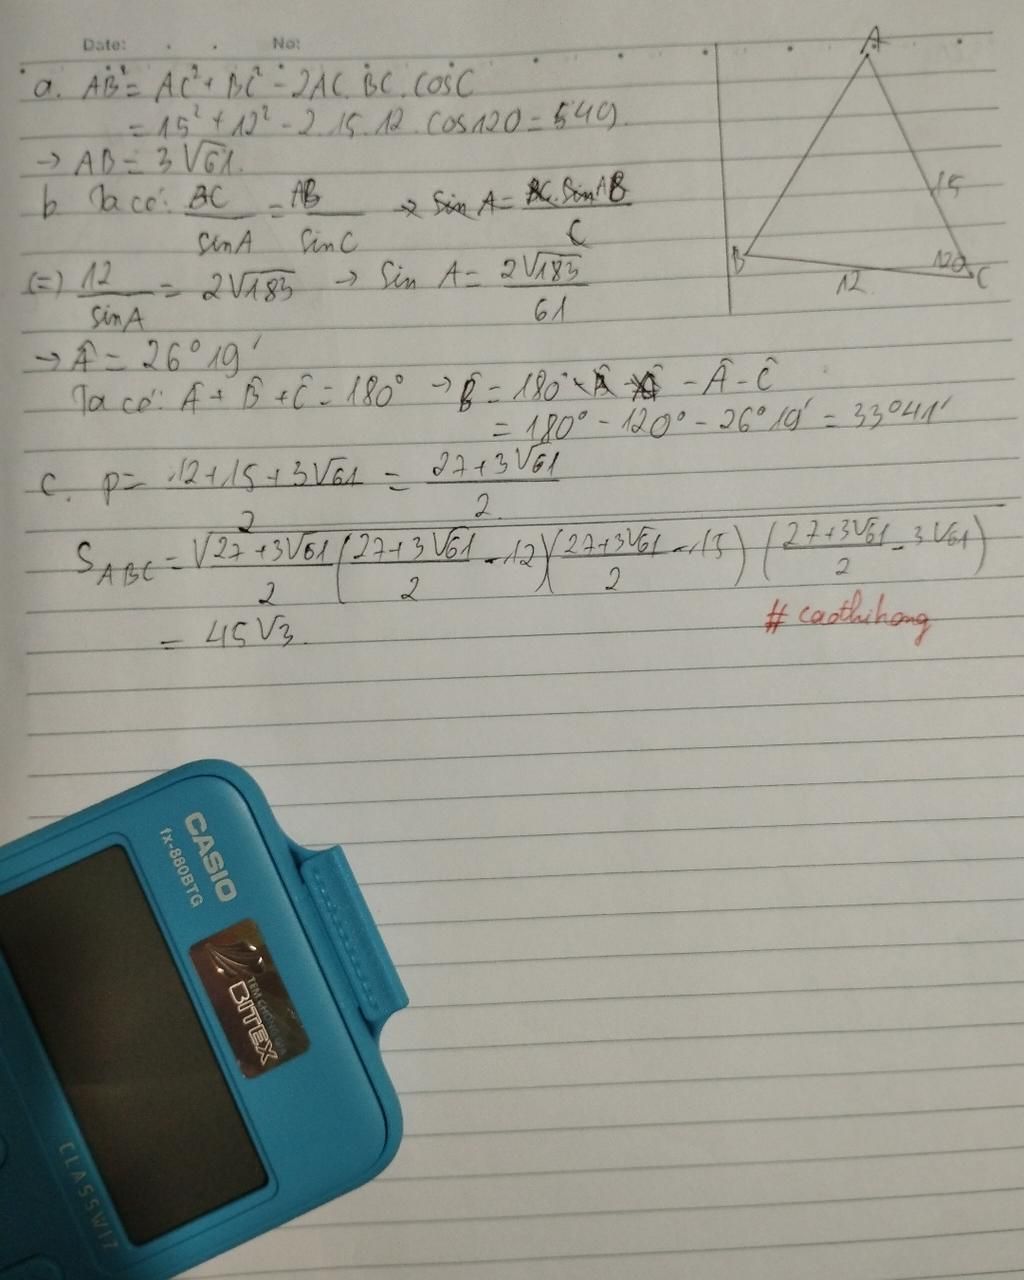 Date: No:
a. AB² = AC² + BC² - 2AC.BC.cosC
= 15² + 12² - 2.15.12.cos120 = 549.
→ AB = 3√61.
b. Ta có: BC/sinA = AB/sinC → sin A = BC.sinAB/C
(=) 12/sinA = 2√183 → sin A = 2√183/61
→ Â = 26°19'
Ta có: Â + B̂ + Ĉ = 180° → B̂ = 180° - Â - Ĉ
= 180° - 120° - 26°19' = 33°41'
c. p = 12+15+3√61/2 = 27+3√61/2.
S_ABC = √27+3√61/2 (27+3√61/2 - 12)(27+3√61/2 - 15)(27+3√61/2 - 3√61)
= 45√3.
#caothihong
A
15
B
12
120
C
CASIO
fx-880BTG
TEM CHỐNG GIẢ
BITEX
CLASSWIZ